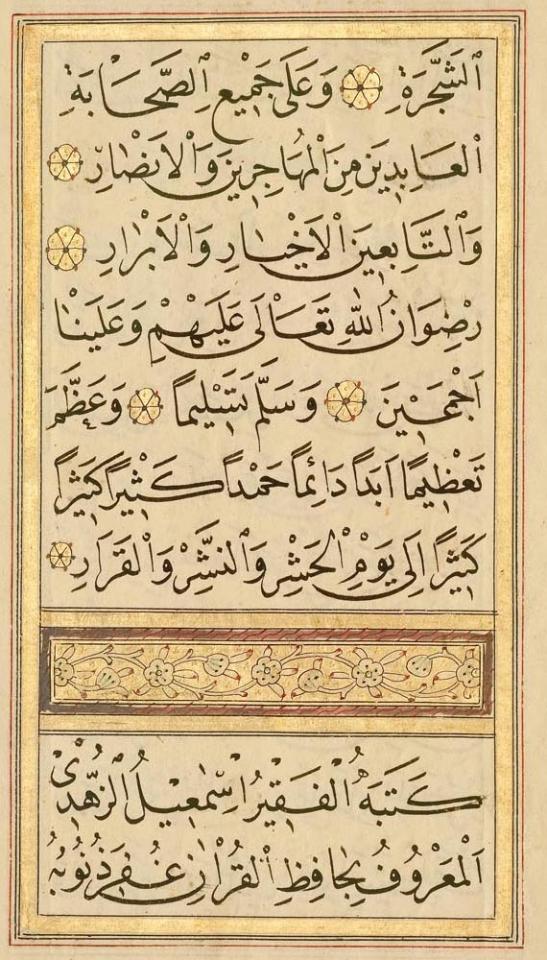 الشَّجَرَةِ وَعَلَى جَمِيعِ الصَّحَابَةِ
الْعَابِدِينَ مِنَ الْمُهَاجِرِينَ وَالْاَنْصَارِ
وَالتَّابِعِينَ الْاَخْيَارِ وَالْاَبْرَارِ
رِضْوَانُ اللّٰهِ تَعَالَى عَلَيْهِمْ وَعَلَيْنَا
اَجْمَعِينَ وَسَلَّمَ تَسْلِيمًا وَعَظَّمَ
تَعْظِيمًا اَبَدًا دَائِمًا حَمْدًا كَثِيرًا كَثِيرًا
كَثِيرًا اِلَى يَوْمِ الْحَشْرِ وَالنَّشْرِ وَالْقَرَارِ
كَتَبَهُ الْفَقِيرُ اِسْمٰعِيلُ الزُّهْدِى
الْمَعْرُوفُ بِحَافِظِ الْقُرْاٰنِ غُفِرَ ذُنُوبُهُ